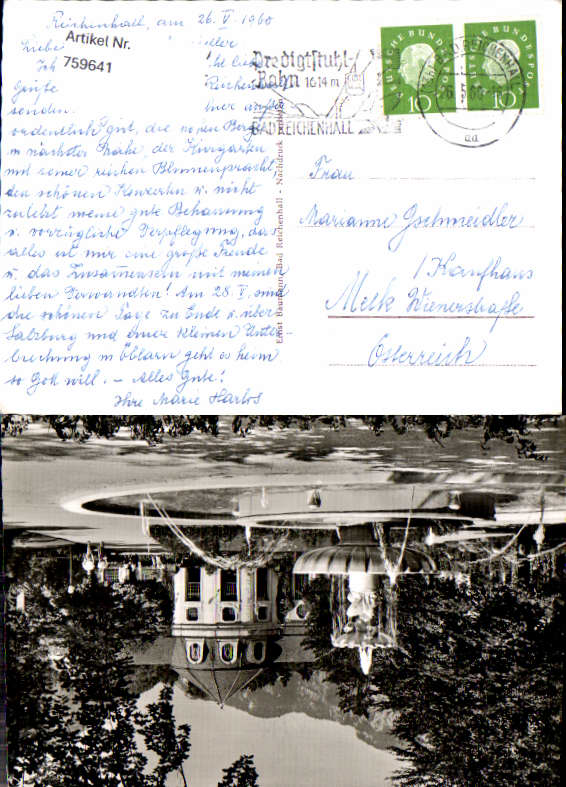 Reichenhall, am 26. V 1960
Liebe
Artikel Nr.
759641
Ich
Grüße Reichenhall
senden.
ordentlich gut, die hohen Berge
in nächster Nähe, der Kurgarten
mit seiner reichen Blumenpracht
den schönen Konzerten u. nicht
zuletzt meine gute Behausung
u. vorzügliche Verpflegung, das
alles ist mir eine große Freude
u. das Zusammensein mit meinen
lieben Verwandten! Am 28. V. sind
die schönen Tage zu Ende u. über
Salzburg und einer kleinen Unter
brechung in Öblarn geht es heim
so Gott will. – Alles Gute!
Ihre Marie Harlos
Predigtstuhl-
Bahn 1614 m
BAD REICHENHALL
DEUTSCHE BUNDESPOST
10
DEUTSCHE BUNDESPOST
10
BAD REICHENHALL
Ernst Baumann, Bad Reichenhall - Nachdruck verboten
Frau
Marianne Gschmeidler
/ Kaufhaus
Melk Wienerstraße
Österreich